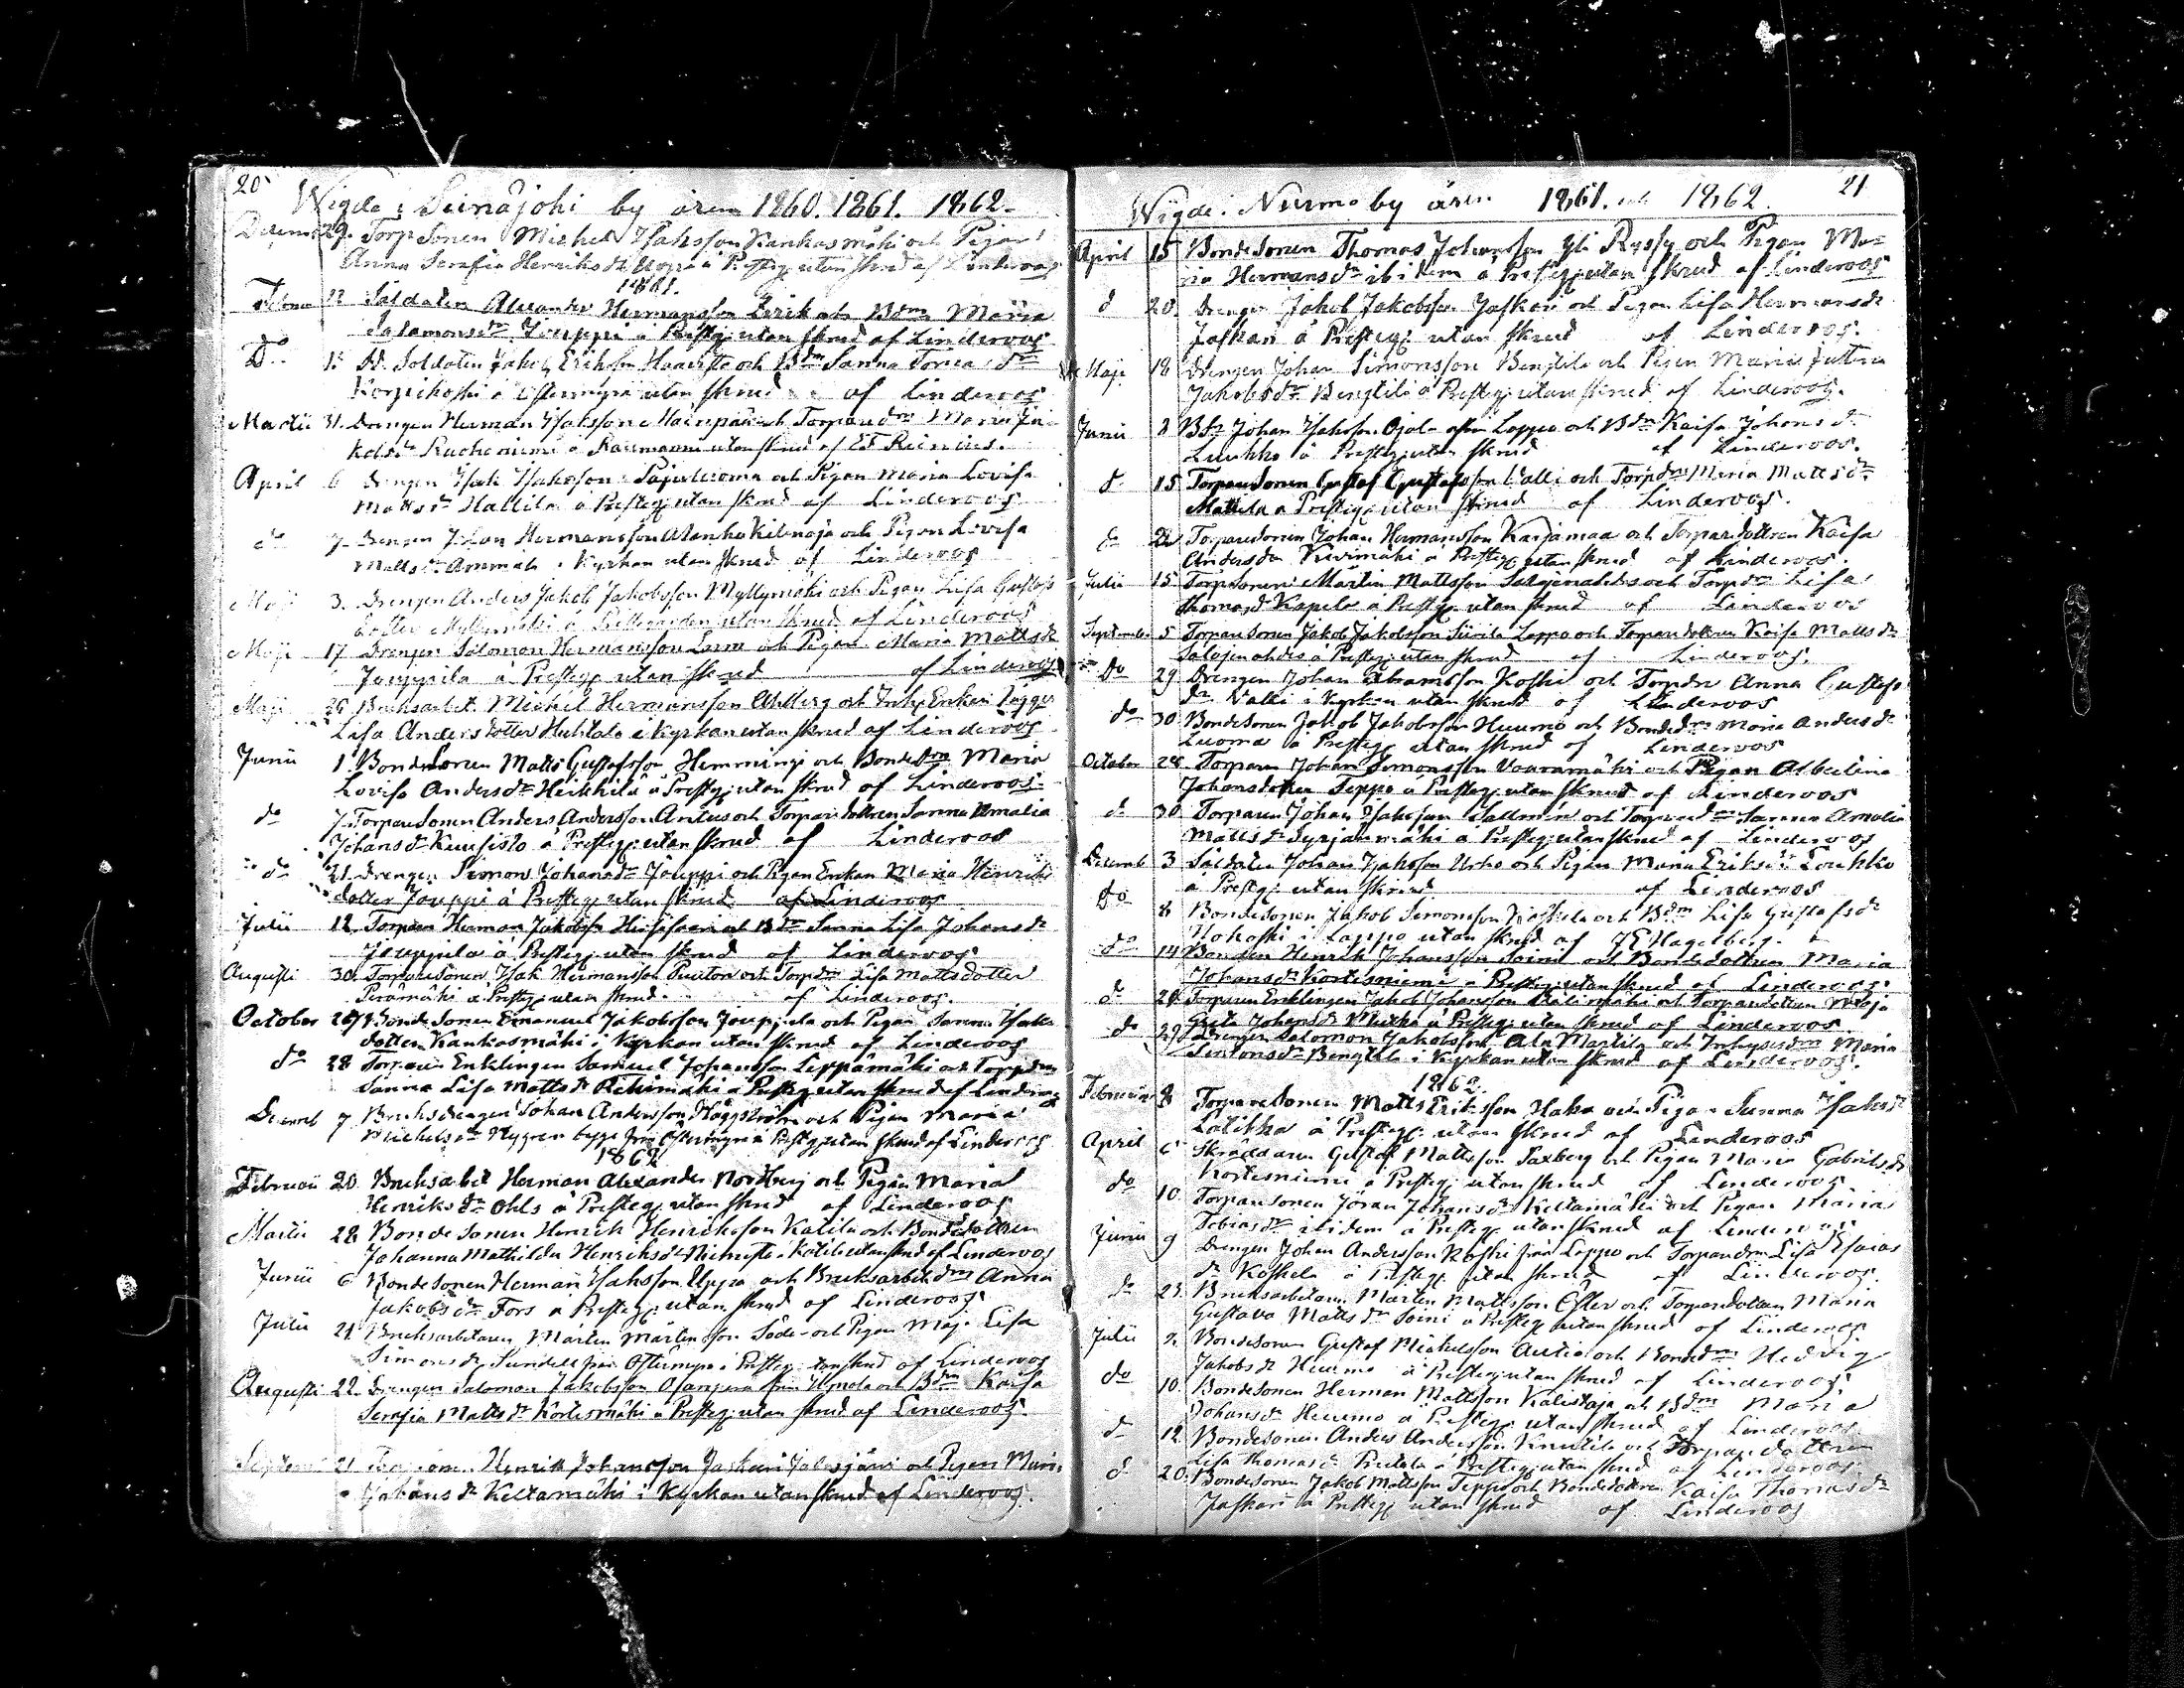 20
Wigde i Seinäjoki by åren 1860. 1861. 1862.
Decemr 29. Torpsonen Michel Isaksson Kankasmäki och Pigan
Anna Serafia Henriksdr Uppa å Prestg. utan skrud af Linderoos
1861.
12 Soldaten Alexander Hermansson Lerik och Bdrn Maria
Salamonsdr Jouppi å Prestg. utan skrud af Linderoos
Do Soldaten Jakob Eriksson och Bdrn Sanna
Korpikoski i Östermyra utan skrud af Linderoos
Martii 31. Drengen Herman Isaksson och Torparedrn Maria
å utan skrud af
April 6 Drengen Isak Isaksson och Pigan Maria Lovisa
Mattsdr Hallila å Prestg. utan skrud af Linderoos
do 7 Drengen Johan Hermansson Alanko och Pigan Lovisa
Mattsdr Ammälä i Kyrkan utan skrud af Linderoos
Maji 3. Drengen Anders Jakob Jakobsson Myllymäki och Pigan Lisa Gustafs
dotter Myllymäki å Prestegården utan skrud af Linderoos
Maji 17 Drengen Salomon Hermansson och Pigan Maria Mattsdr
Jouppila å Prestg. utan skrud af Linderoos
Maji 26 Bruksarbet. Michel Hermansson Ahlberg och Inhy. Enkan
Lisa Andersdotter Huhtala i Kyrkan utan skrud af Linderoos
Junii 1. Bondesonen Matts Gustafsson Hemminge och Bondedrn Maria
Lovisa Andersdr Heikkilä å Prestg. utan skrud af Linderoos
do 7. Torparesonen Anders Andersson Antus och Torparedottren Sanna Amalia
Johansdr Kuusisto å Prestg. utan skrud af Linderoos
do 21. Drengen Simon Johansdr Jouppi och Pigan Enkan Maria Henriks
dotter Jouppi å Prestg. utan skrud af Linderoos
Julii 12. Torparen Herman Jakobsson och Bdrn Sanna Lisa Johansdr
Jouppila å Prestg. utan skrud af Linderoos
Augusti 30. Torparesonen Isak Hermansson och Torpdrn Lisa Mattsdotter
Perämäki å Prestg. utan skrud af Linderoos.
October 20 Bondesonen Emanuel Jakobsson Jouppila och Pigan Sanna Isaks
dotter Kankasmäki i Kyrkan utan skrud af Linderoos
do 28 Torparen Enklingen Samuel Johansson Leppämäki och Torpdrn
Sanna Lisa Mattsdr å Prestg. utan skrud af Linderoos
Decemb 7 Bruksdrengen Johan Andersson Häggström och Pigan Maria
Michelsdr Nygren begge från Östermyra å Prestg. utan skrud af Linderoos
1862
Februari 20. Bruksarbet Herman Alexander Nordberg och Pigan Maria
Henriksdr Ohls å Prestg. utan skrud af Linderoos
Martii 28 Bondesonen Henrik Henriksson Katila och Bondedottren
Johanna Mathilda Henriksdr Niemistö i Katila utan skrud af Linderoos
Junii 6 Bondesonen Herman Isaksson Uppa och Bruksarbet.drn Anna
Jakobsdr Fors å Prestg. utan skrud af Linderoos
Julii 21 Bruksarbetaren Mårten Mårtensson Söder och Pigan Maj. Lisa
Simonsdr Sundell från Östermyra å Prestg. utan skrud af Linderoos
Augusti 22. Drengen Salomon Jakobsson från och Bdrn Kaisa
Serafia Mattsdr Körtesmäki å Prestg. utan skrud af Linderoos.
Septem 21 Henrik Johansson Jaskari Jalasjärvi och Pigan Maria
Johansdr Keltamäki i Kyrkan utan skrud af Linderoos.
21
Wigde i Nurmo by åren 1861. och 1862.
April 15 Bondesonen Thomas Johansson Yli Ryssy och Pigan Ma-
ria Hermansdr ibidem å Prestg. utan skrud af Linderoos
d 20. Drengen Jakob Jakobsson Jaskari och Pigan Lisa Hermansdr
Jaskari å Prestg. utan skrud af Linderoos.
Maji 18 Drengen Johan Simonsson Bengtila och Pigan Maria Justina
Jakobsdr Bengtila å Prestg. utan skrud af Linderoos.
Junii 8 Bs Johan Isaksson Ojala från Lappo och Bdrn Kaisa Johansdr
Luukko å Prestg. utan skrud af Linderoos.
d 15 Torparesonen Gustaf Gustafsson Walli och Torpdrn Maria Mattsdr
Mattila å Prestg. utan skrud af Linderoos.
d 21 Torparesonen Johan Hermansson Karjamaa och Torparedottren Kaisa
Andersdr Kivimäki å Prestg. utan skrud af Linderoos.
Julii 15 Torpsonen Mårtin Mattsson och Torpdrn Lisa
Thomasdr Kapela å Prestg. utan skrud af Linderoos
September 5 Torparesonen Jakob Jakobsson Siirilä Lappo och Torparedottren Kaisa Mattsdr
å Prestg. utan skrud af Linderoos.
do 29 Drengen Johan Abramsson Koski och Torpdr Anna Gustafs
dr Walli i Kyrkan utan skrud af Linderoos
do 30 Bondesonen Jakob Jakobsson Huumo och Bondedrn Maria Andersdr
Luoma å Prestg. utan skrud af Linderoos
October 28 Torparen Johan Simonsson Vaaramäki och Pigan Albertina
Johansdotter Teppo å Prestg. utan skrud af Linderoos
d 30. Torparen Johan Isaksson Sallmén och Torparedrn Sanna Amalia
Mattsdr Syrjänmäki å Prestg. utan skrud af Linderoos
Decemb 3 Soldaten Johan Isaksson Urho och Pigan Maria Eriksdr Loukko
å Prestg. utan skrud af Linderoos
Do 8 Bondesonen Jakob Simonsson och Bdrn Lisa Gustafsdr
i Lappo utan skrud af J E Hagelberg.
do 14 Bonden Henrik Johansson Soini och Bondedottren Maria
Johansdr Kortesniemi å Prestg. utan skrud af Linderoos
d 28 Torparen Enklingen Jakob Johansson och Torparedottren Maja
Greta Johansdr å Prestg. utan skrud af Linderoos.
do 29 Drengen Salomon Jakobsson Ala Martila och Inhysesdrn Maria
Simonsdr Bengtila i Kyrkan utan skrud af Linderoos.
1862.
Februari 8 Torparesonen Matts Eriksson och Pigan Sanna Isaksdr
å Prestg. utan skrud af Linderoos
April 6 Skräddaren Gustaf Mattsson Saxberg och Pigan Maria Gabrielsdr
Kortesniemi å Prestg. utan skrud af Linderoos
do 10. Torparesonen Jöran Johansdr Keltamäki och Pigan Maria
Tobiasdr ibidem å Prestg. utan skrud af Linderoos
Junii 9 Drengen Johan Andersson Koski från Lappo och Torparedrn Lisa Esaias
dr Koskela å Prestg. utan skrud af Linderoos.
do 23. Bruksarbetaren Mårten Mattsson Öster och Torparedottren Maria
Gustava Mattsdr Soini å Prestg. utan skrud af Linderoos
Julii Bondesonen Gustaf Michelsson Autio och Bondedrn Hedvig
Jakobsdr Huumo å Prestg. utan skrud af Linderoos.
do 10. Bondesonen Herman Mattsson Kalistaja och Bdrn Maria
Johansdr Huumo å Prestg. utan skrud af Linderoos
d 12 Bondesonen Anders Andersson Knuutila och Torparedottren
Lisa Thomasdr å Prestg. utan skrud af Linderoos.
d 20. Bondesonen Jakob Mattsson Teppo och Bondedottren Kaisa Thomasdr
Jaskari å Prestg. utan skrud af Linderoos